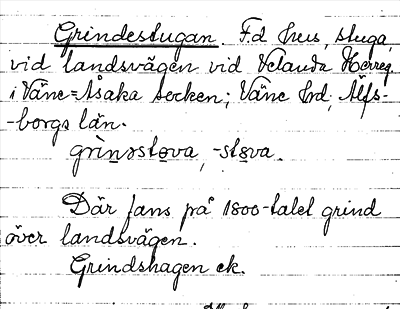 Grindestugan F.d hus, stuga,
vid landsvägen vid Velanda Herreg.
i Väne-Åsaka socken; Väne hd, Älfs-
-borgs län.
grìnəstova, -stəva.
Där fans på 1800-talet grind
över landsvägen.
Grindshagen ek.